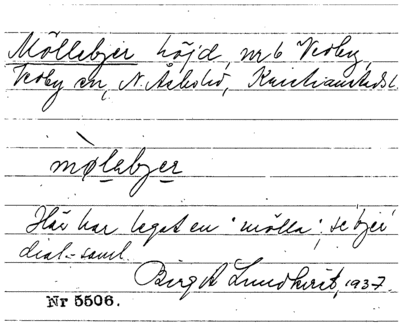 Möllebjer höjd, nr 6 Verby,
Verby sn, N. Åsbohd, Kristianstads l.
mòlebjer
Här har legat en "mölla"; se bjer i
dial.-saml.
Birgit Lundkvist, 1937
Nr 5506.